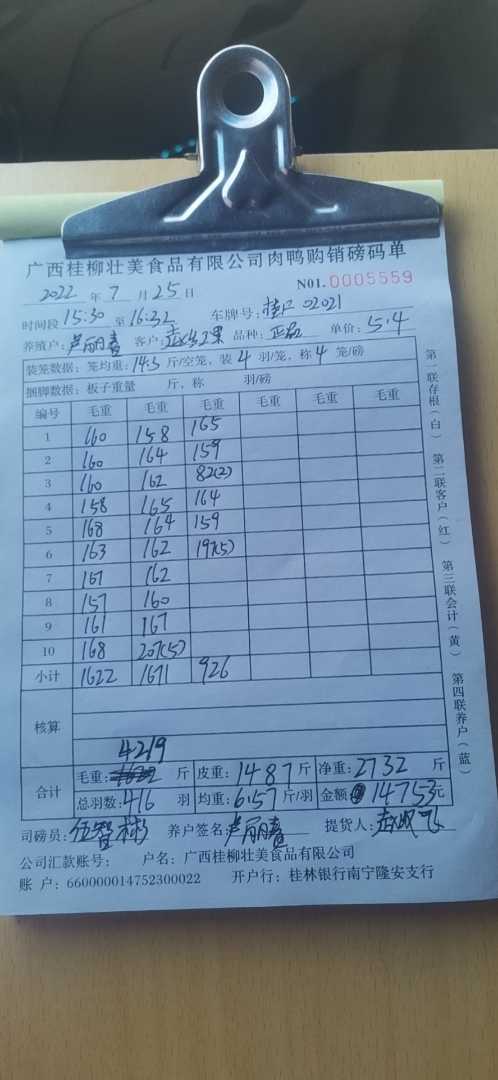 广西桂柳壮美食品有限公司肉鸭购销磅码单
2022 年 7 月 25 日 N01.0005559
时间段 15:30 至 16:32 车牌号: 桂 02021
养殖户: 芦丽春 客户: 品种: 正品 单价: 5.4
装笼数据: 笼均重: 14.3 斤/空笼, 装 4 羽/笼, 称 4 笼/磅
捆脚数据: 板子重量 斤, 称 羽/磅
编号 毛重 毛重 毛重 毛重 毛重 毛重
1 160 158 165
2 160 164 159
3 160 162 82(2)
4 158 165 164
5 168 164 159
6 163 162 197(5)
7 167 162
8 157 160
9 161 167
10 168 207(5)
小计 1622 1671 926
核算
4219
合计 毛重: 斤 皮重: 1487 斤 净重: 2732 斤
总羽数: 416 羽 均重: 6.57 斤/羽 金额 14753 元
司磅员: 伍智彬 养户签名: 芦丽春 提货人: 赵成飞
公司汇款账号: 户名: 广西桂柳壮美食品有限公司
账 户: 660000014752300022 开户行: 桂林银行南宁隆安支行
第一联存根(白) 第二联客户(红) 第三联会计(黄) 第四联养户(蓝)